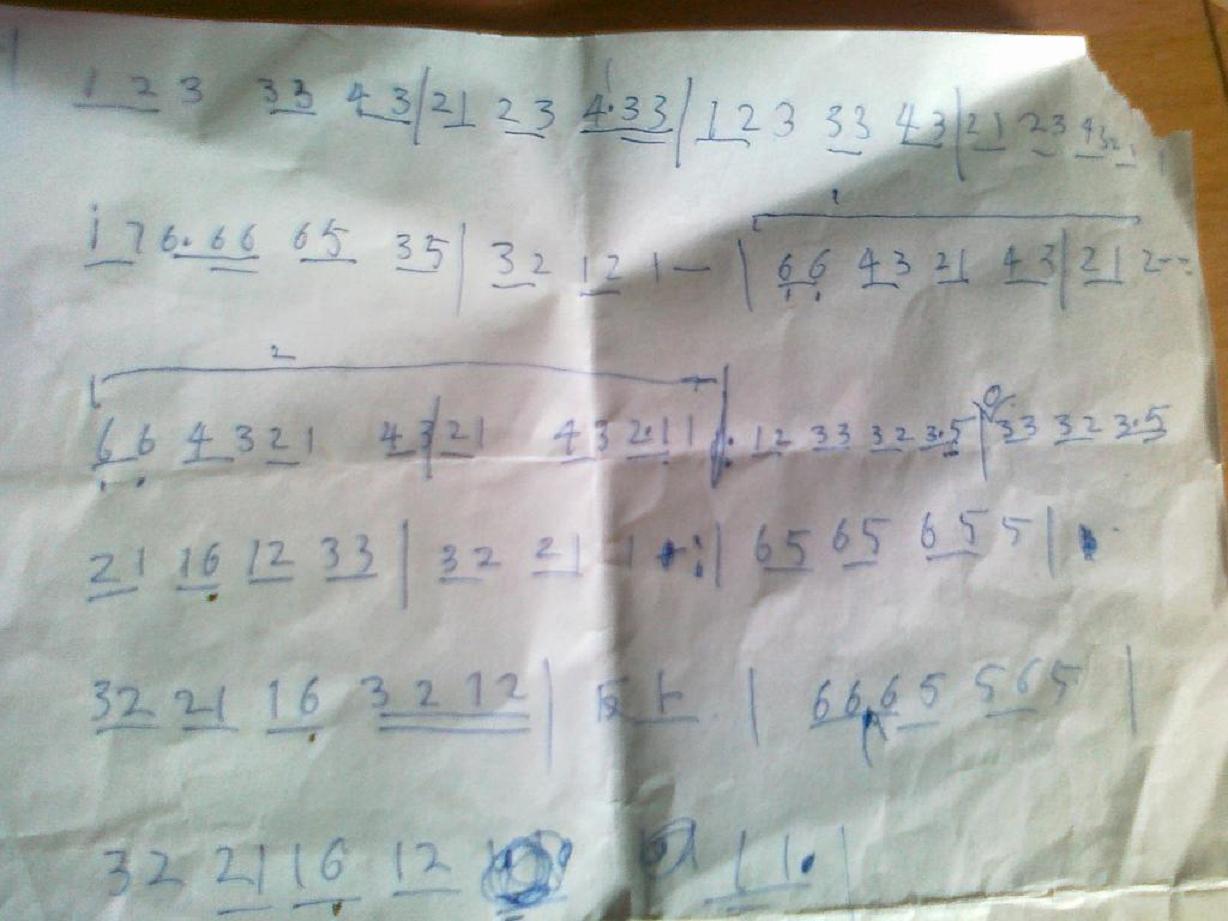 1 2 3 33 43 | 21 23 4·33 | 12 3 33 43 | 21 23 4321
i 7 6·66 65 35 | 32 12 1 — | 66 43 21 43 | 21 2--
2
66 43 21 43 | 21 43 2·11 | 12 33 32 3·5 | 33 32 3·5
21 16 12 33 | 32 21 1 :| 65 65 65 5 |
32 21 16 3212 | | 66 65 565 |
32 21 16 12 11· |